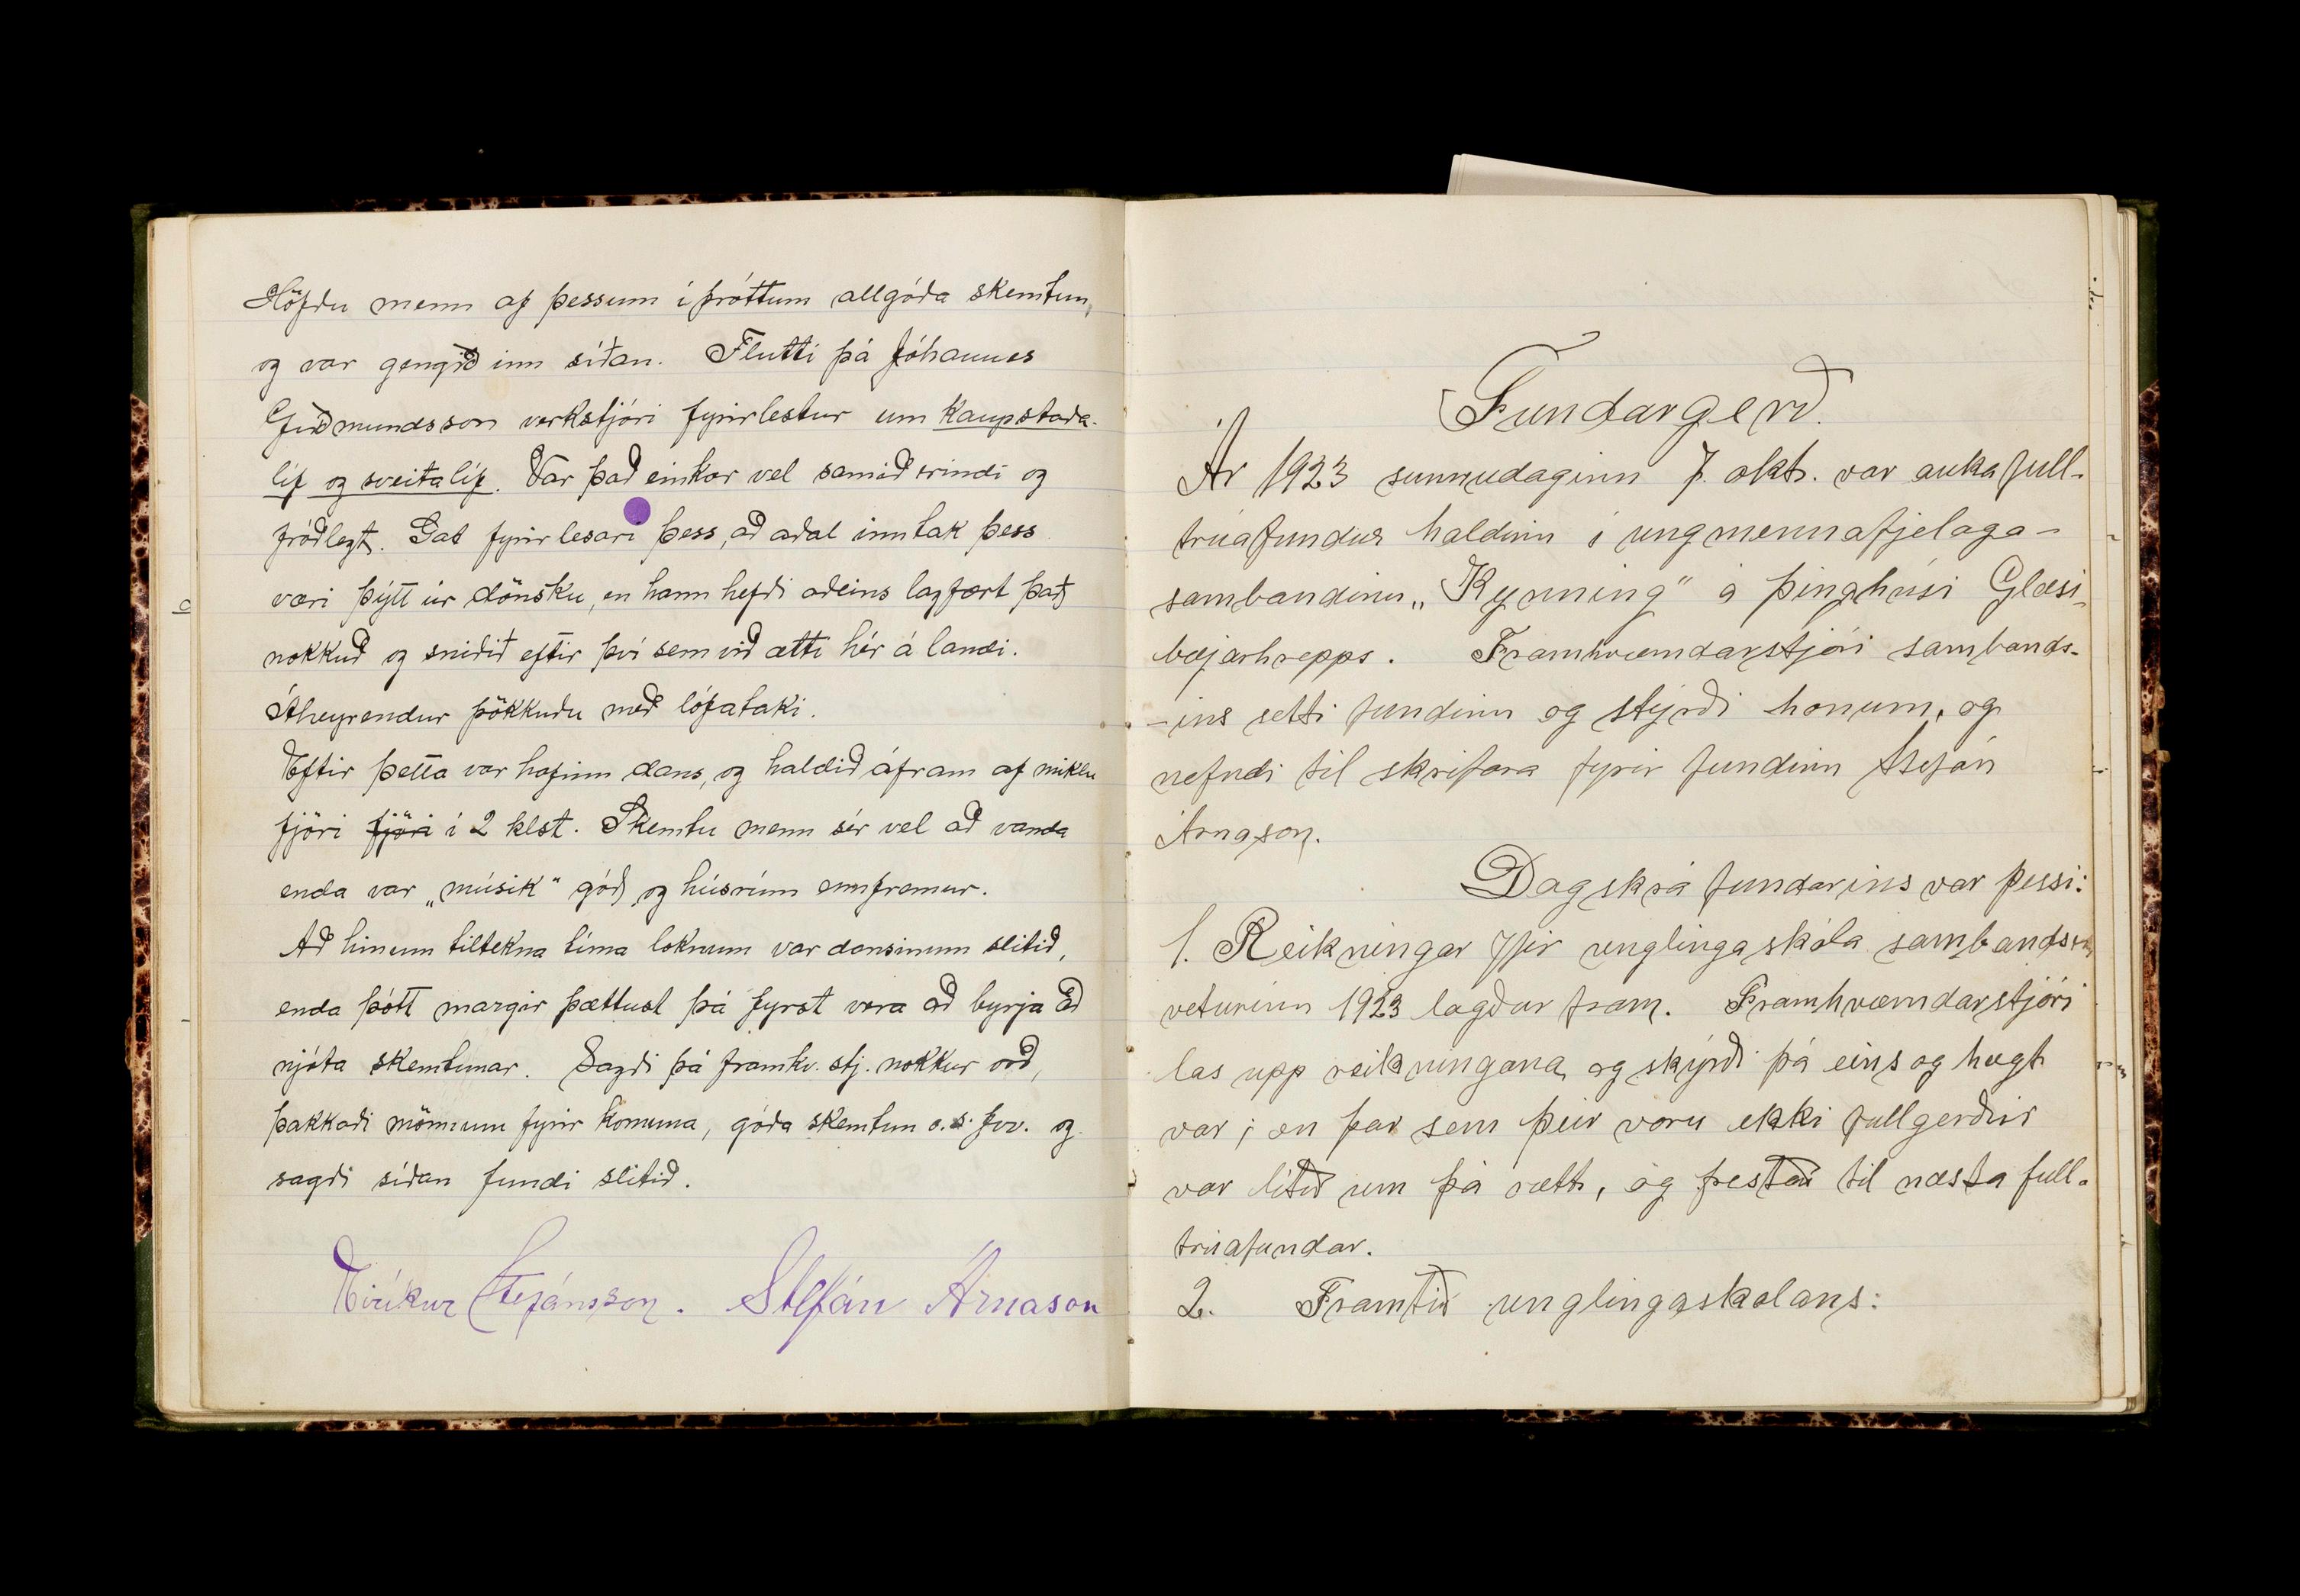 Höfðu menn af þessum íþróttum allgóða skemtun,
og var gengið inn síðan. Flutti þá Jóhannes
Guðmundsson verkstjóri fyrirlestur um Kaupstaða-
líf og sveitalíf. Var það einkar vel samið erindi og
fróðlegt. Gat fyrirlesari þess, að aðal inntak þess
væri þýtt úr dönsku, en hann hefði aðeins lagfært það
nokkuð og sniðið eftir því sem við ætti hér á landi.
Áheyrendur þökkuðu með lófataki.
Eftir þetta var hafinn dans, og haldið áfram af miklu
fjöri fjöri í 2 klst. Skemtu menn sér vel að vanda
enda var „músik" góð og húsrúm ennfremur.
Að hinum tiltekna tíma loknum var dansinum slitið,
enda þótt margir þættust þá fyrst vera að byrja að
njóta skemtunar. Sagði þá framkv. stj. nokkur orð,
þakkaði mönnum fyrir komuna, góða skemtun o. s. frv. og
sagði síðan fundi slitið.
Eiríkur Stefánsson. Stefán Árnason
Fundargerð.
Ár 1923 sunnudaginn 7. okt. var auka full-
trúafundur haldinn í ungmennafjelaga-
sambandinu „Kynning" á þinghúsi Glæsi-
bæjarhrepps. Framhvæmdarstjóri sambands-
-ins setti fundinn og stýrði honum, og
nefndi til skrifara fyrir fundinn Stefán
Árnason.
Dagskrá fundarins var þessi:
1. Reikningar yfir unglingaskóla sambandsins
veturinn 1923 lagðar fram. Framhvæmdarstjóri
las upp reikningana og skýrði þá eins og hægt
var; en þar sem þeir voru ekki fullgerðir
var litið um þá rætt, og frestað til næsta full-
trúafundar.
2. Framtíð unglingaskolans: